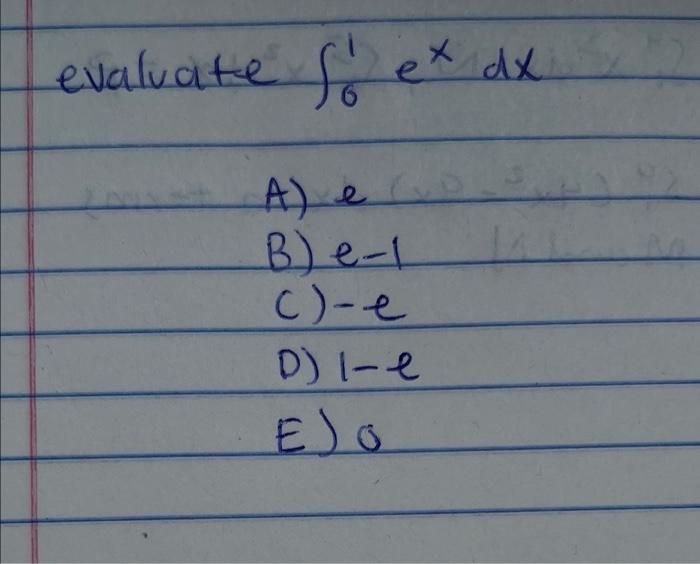 evaluate ∫₀¹ eˣ dx
A) e
B) e-1
C) -e
D) 1-e
E) 0